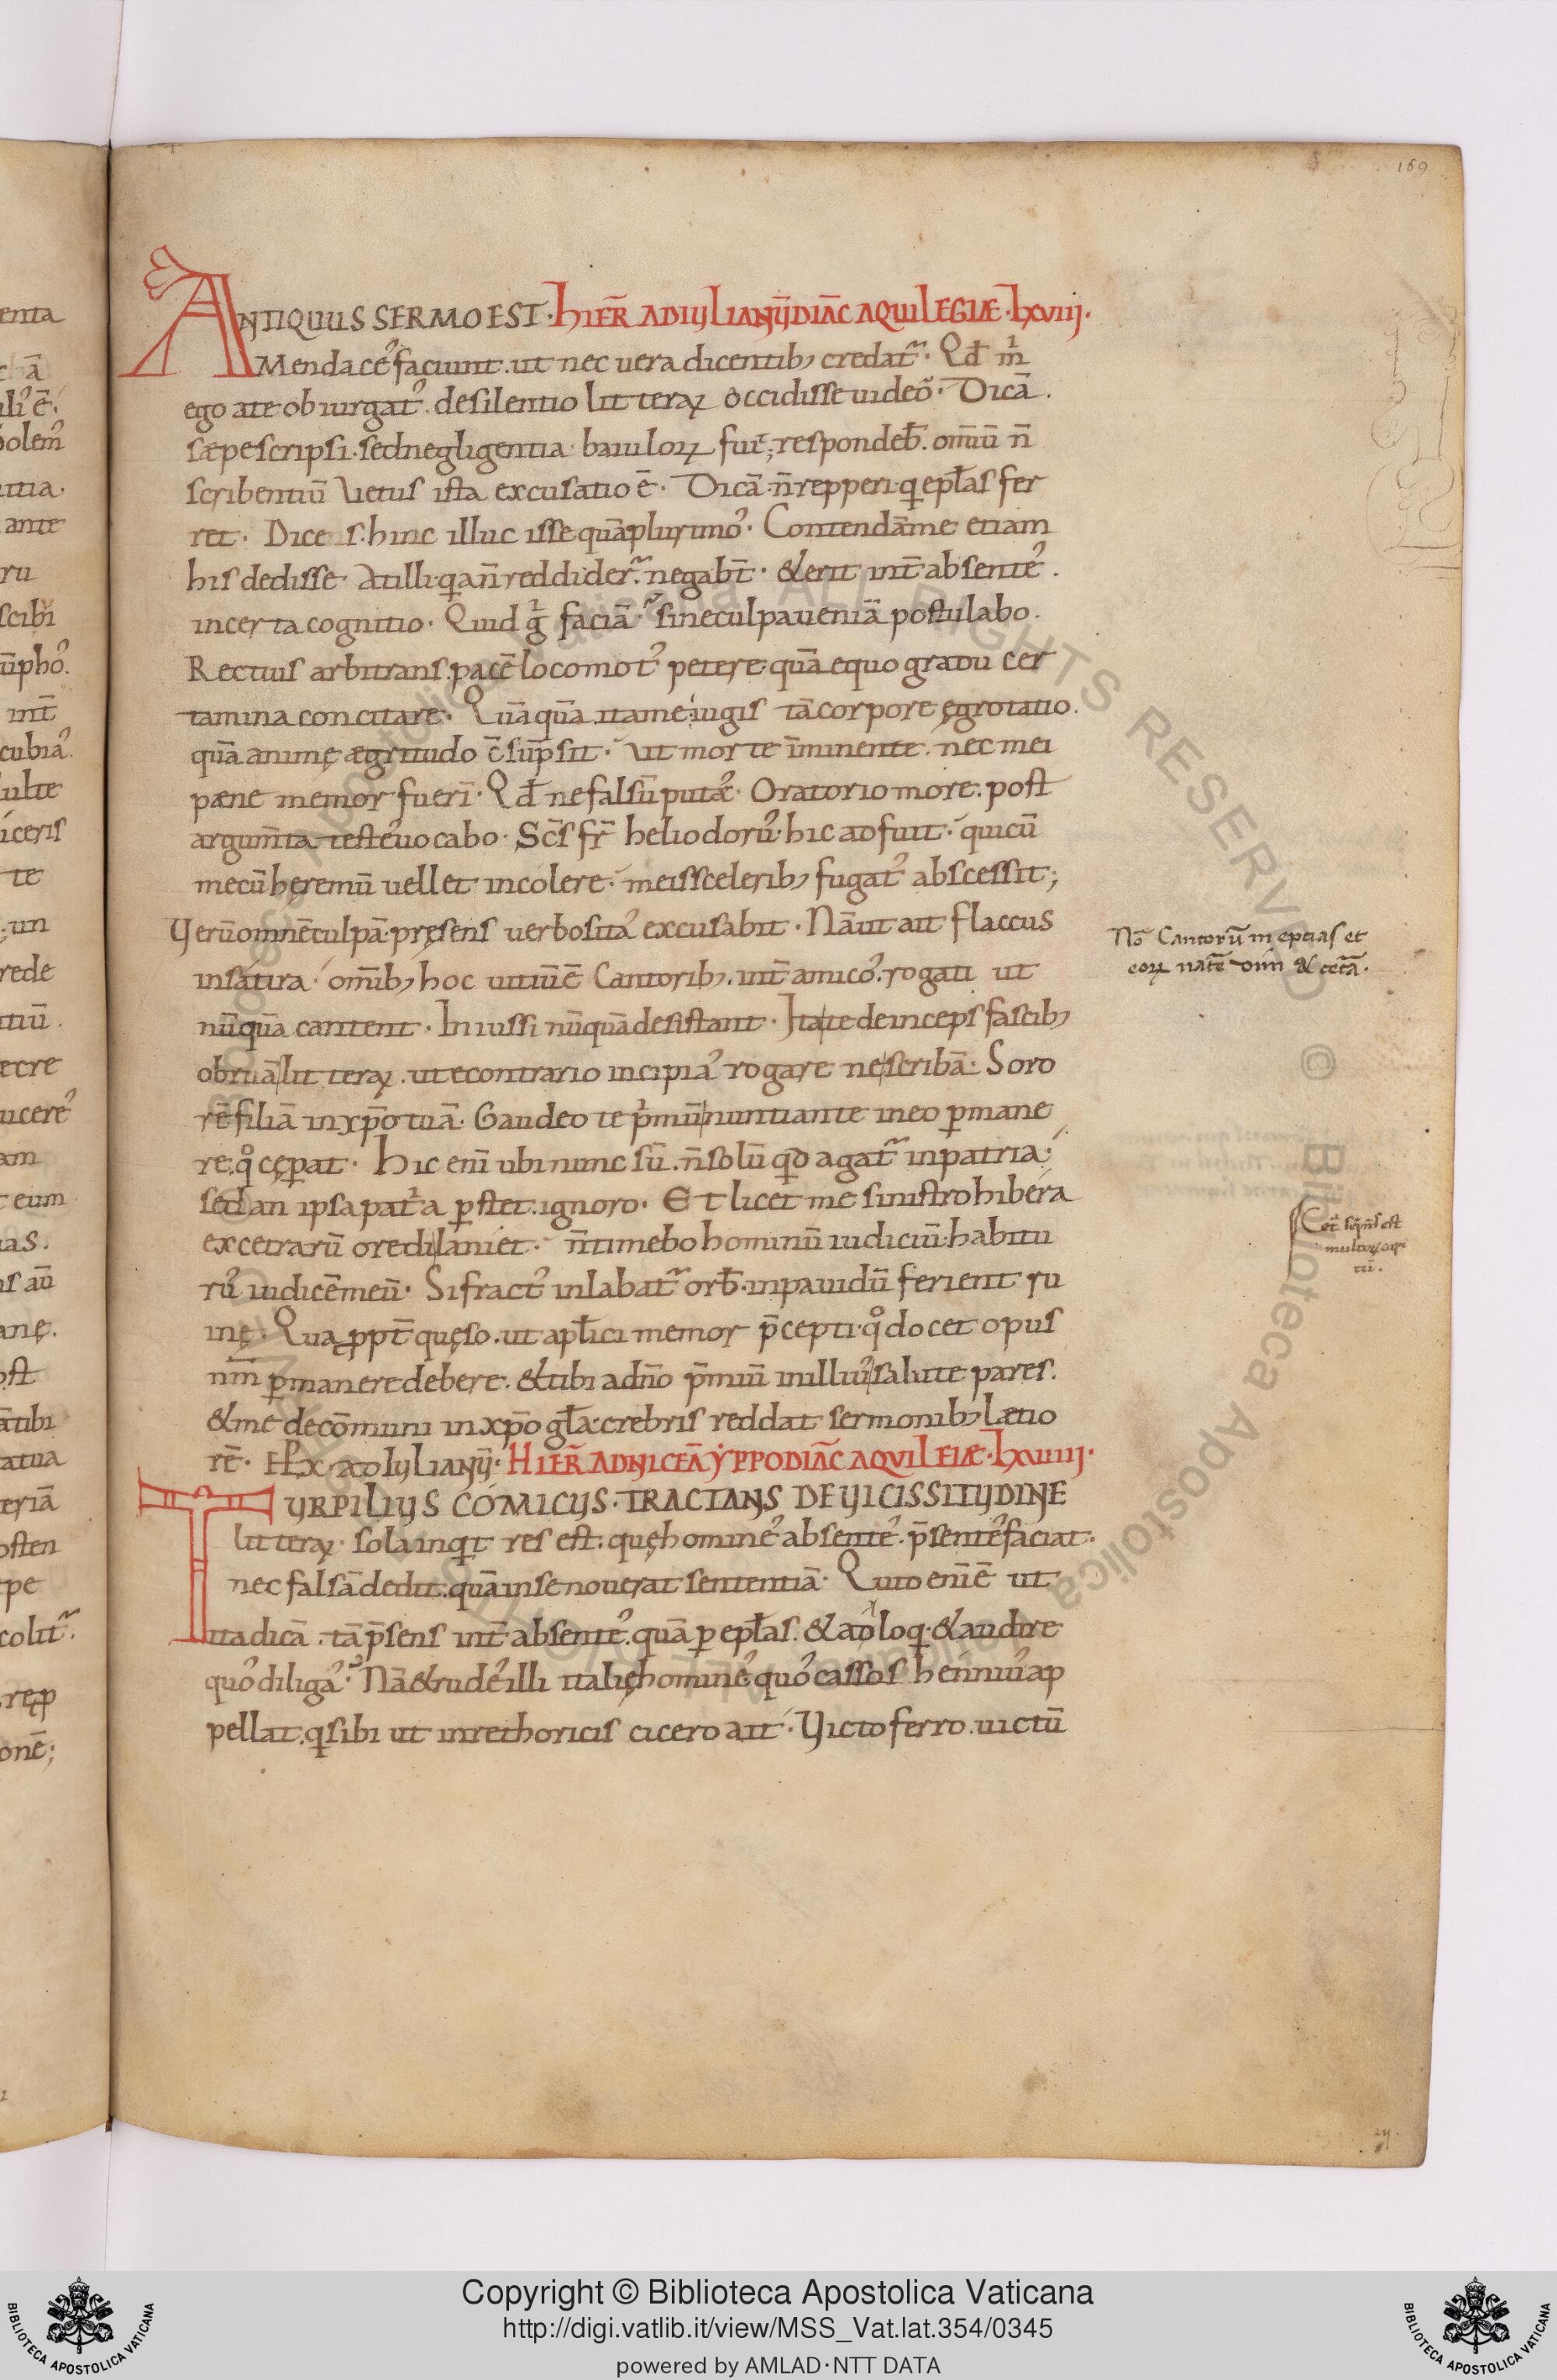 169
ANTIQUUS SERMO EST · HIER̄ AD IULIANŪ DIAC̄ AQUILEGIÆ · LXVIII ·
Mendace᷒ faciunt . ut nec uera dicentib; credat᷑ · Qđ m̄
ego a te obiurgat᷒ . de silentio litteraꝝ occidisse uideo᷒ · Dicā .
sæpe scripsi . sed negligentia baiuloꝝ fuit; respondeb̄ . om̄iū n̄
scribentiū Uetus ista excusatio ē · Dicā n̄ repperi q̇ ep̄las fer
ret · Dicens hinc illuc isse quā plurimo᷒ · Contendā me etiam
his dedisse At illi q̇a n̄ reddider᷑ negab̄t · & erit int̄ absente᷒ .
incerta cognitio · Quid g̊ faciā ᷑ sine culpa ueniā postulabo .
Rectius arbitrans . pacē loco mot᷒ petere quā equo gradu cer
tamina concitare · Quāquā ita me iugis tā corpore ęgrotatio .
quā animę ægritudo c̄sūpsit · ut morte īminente . nec mei
pæne memor fueri᷑ · Qđ ne falsū puta᷒ · Oratorio more . post
argum̄ta teste᷒ uocabo · Sc̄s fr̄ heliodoru᷒ hic adfuit · qui cū
mecū hęremū uellet incolere meis sceleribꝫ fugat᷒ abscessit;
Uerū omnē culpā pręsens uerbosita᷒ excusabit · Nā ut ait flaccus
in satira om̄ibꝫ hoc uitiū ē Cantoribꝫ . int̄ amico᷒ rogati ut
nūquā cantent · Iniussi nūquā desistant · Ita te deinceps fascibꝫ
obruā litteraꝝ . ut econtrario incipia᷒ rogare ne scribā · Soro
rē filiā in xp̄o tuā · Gaudeo te p̄mū nuntiante in eo p̄mane
re q̊ cęperat · Hic eni᷑ ubi nunc sū . n̄ solū qd agat᷑ in patria
sed an ipsa patͥa p̄stet ignoro · Et licet me sinistro hibera
excetrarū ore dilaniet · n̄ timebo hominū iudiciū habitu
ru᷒ iudicē meū · Si fract᷒ inlabat᷑ orb̄ inpauidū ferient ru
inę · Qua ꝓpt̄ quęso . ut ap̄lici memor p̄cepti q̊ docet opus
nr̄m p̄manere debere . & tibi a dn̄o p̄miū in illiu᷒ salute pares .
& me de cōmuni in xp̄o gl̄a crebris reddat sermonibꝫ lætio
rē · Exp̄ ad Iulianū · HIER̄ AD NICEĀ YPPODIAC̄ AQUILEIÆ · LXVIIII ·
TURPILIUS COMICUS · TRACTANS DE UICISSITUDINE
litteraꝝ · sola inq̇t res est . quę homine᷒ absente᷒ . p̄sente᷒ faciat ·
nec falsā dedit . quāuis e nouerat sententiā · Quid eni᷑ ē ut
ita dicā . tā p̄sens int̄ absente᷒ . quā p ep̄las . & adloq̇ & audire
quo᷒ diliga᷒ ᷑ Nā & rude᷒ illi italię homine᷒ quo᷒ cassos henniu᷒ ap
pellat . q̇ sibi ut in rethoricis cicero ait · Uicto ferro . uictū
Nō Cantorū ineptias et
eoꝝ natē
Copyright © Biblioteca Apostolica Vaticana
http://digi.vatlib.it/view/MSS_Vat.lat.354/0345
powered by AMLAD·NTT DATA
BIBLIOTECA APOSTOLICA VATICANA
BIBLIOTECA APOSTOLICA VATICANA